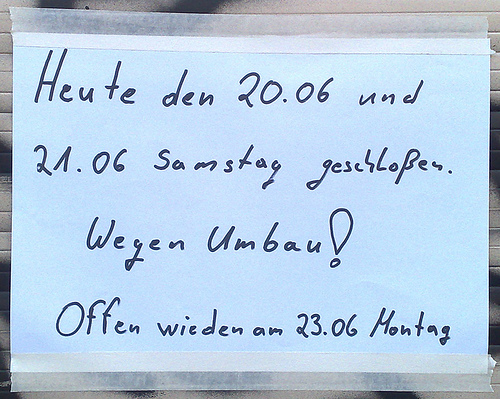 Heute den 20.06 und
21.06 Samstag geschloßen.
Wegen Umbau!
Offen wieden am 23.06 Montag